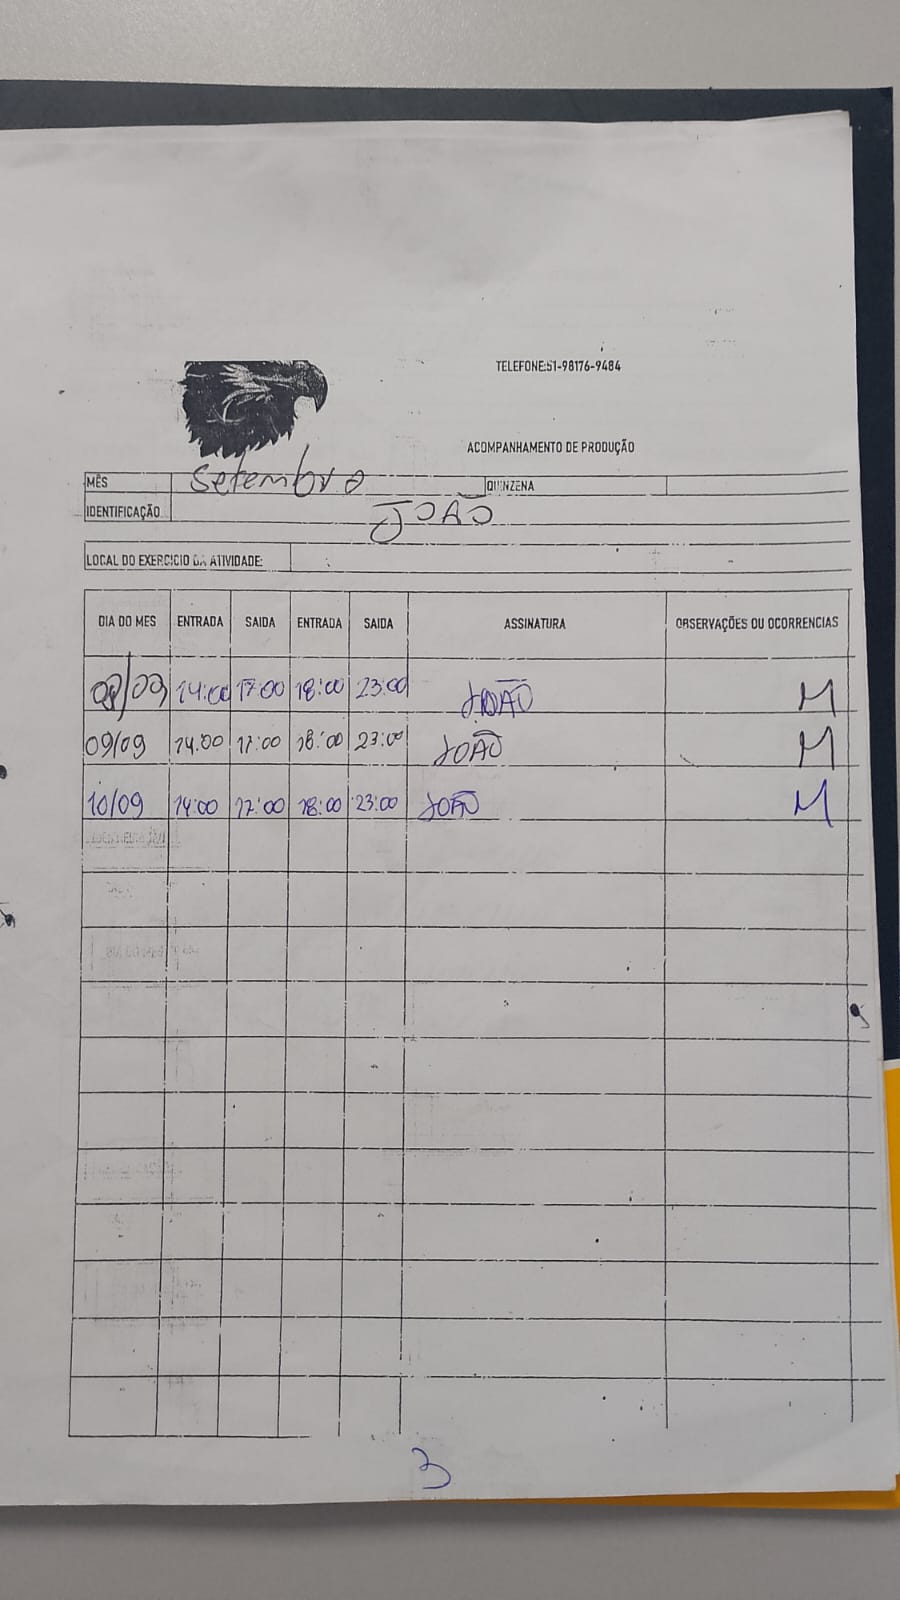 TELEFONE:51-98176-9484
ACOMPANHAMENTO DE PRODUÇÃO
MÊS setembro QUINZENA
IDENTIFICAÇÃO JOÃO
LOCAL DO EXERCICIO DA ATIVIDADE:
DIA DO MES ENTRADA SAIDA ENTRADA SAIDA ASSINATURA OBSERVAÇÕES OU OCORRENCIAS
08/09 14:00 17:00 18:00 23:00 JOÃO M
09/09 14:00 17:00 18:00 23:00 JOÃO M
10/09 14:00 17:00 18:00 23:00 JOÃO M
3